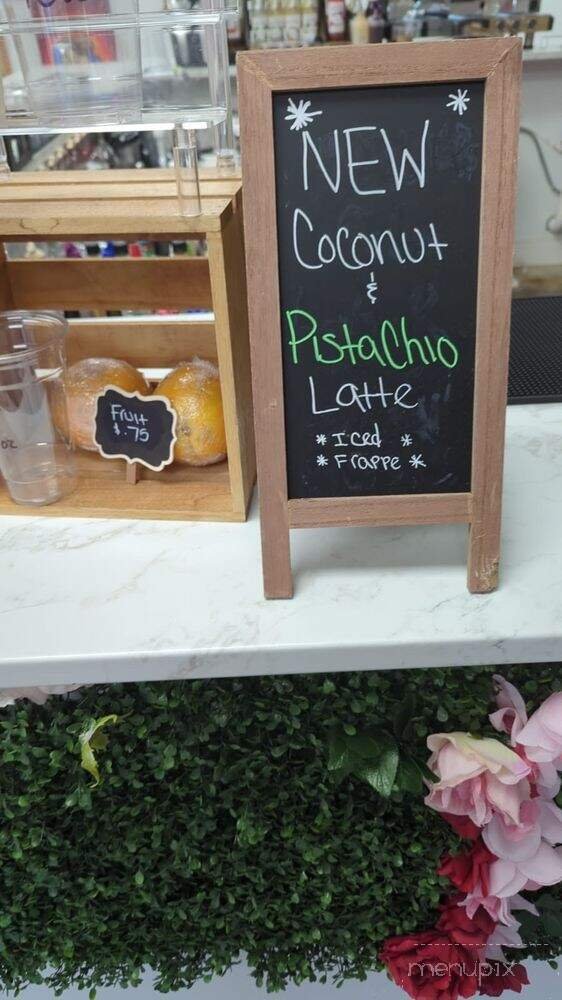 NEW
Coconut
&
Pistachio
Latte
* Iced *
* Frappe *
Fruit
$.75
oz
menupix